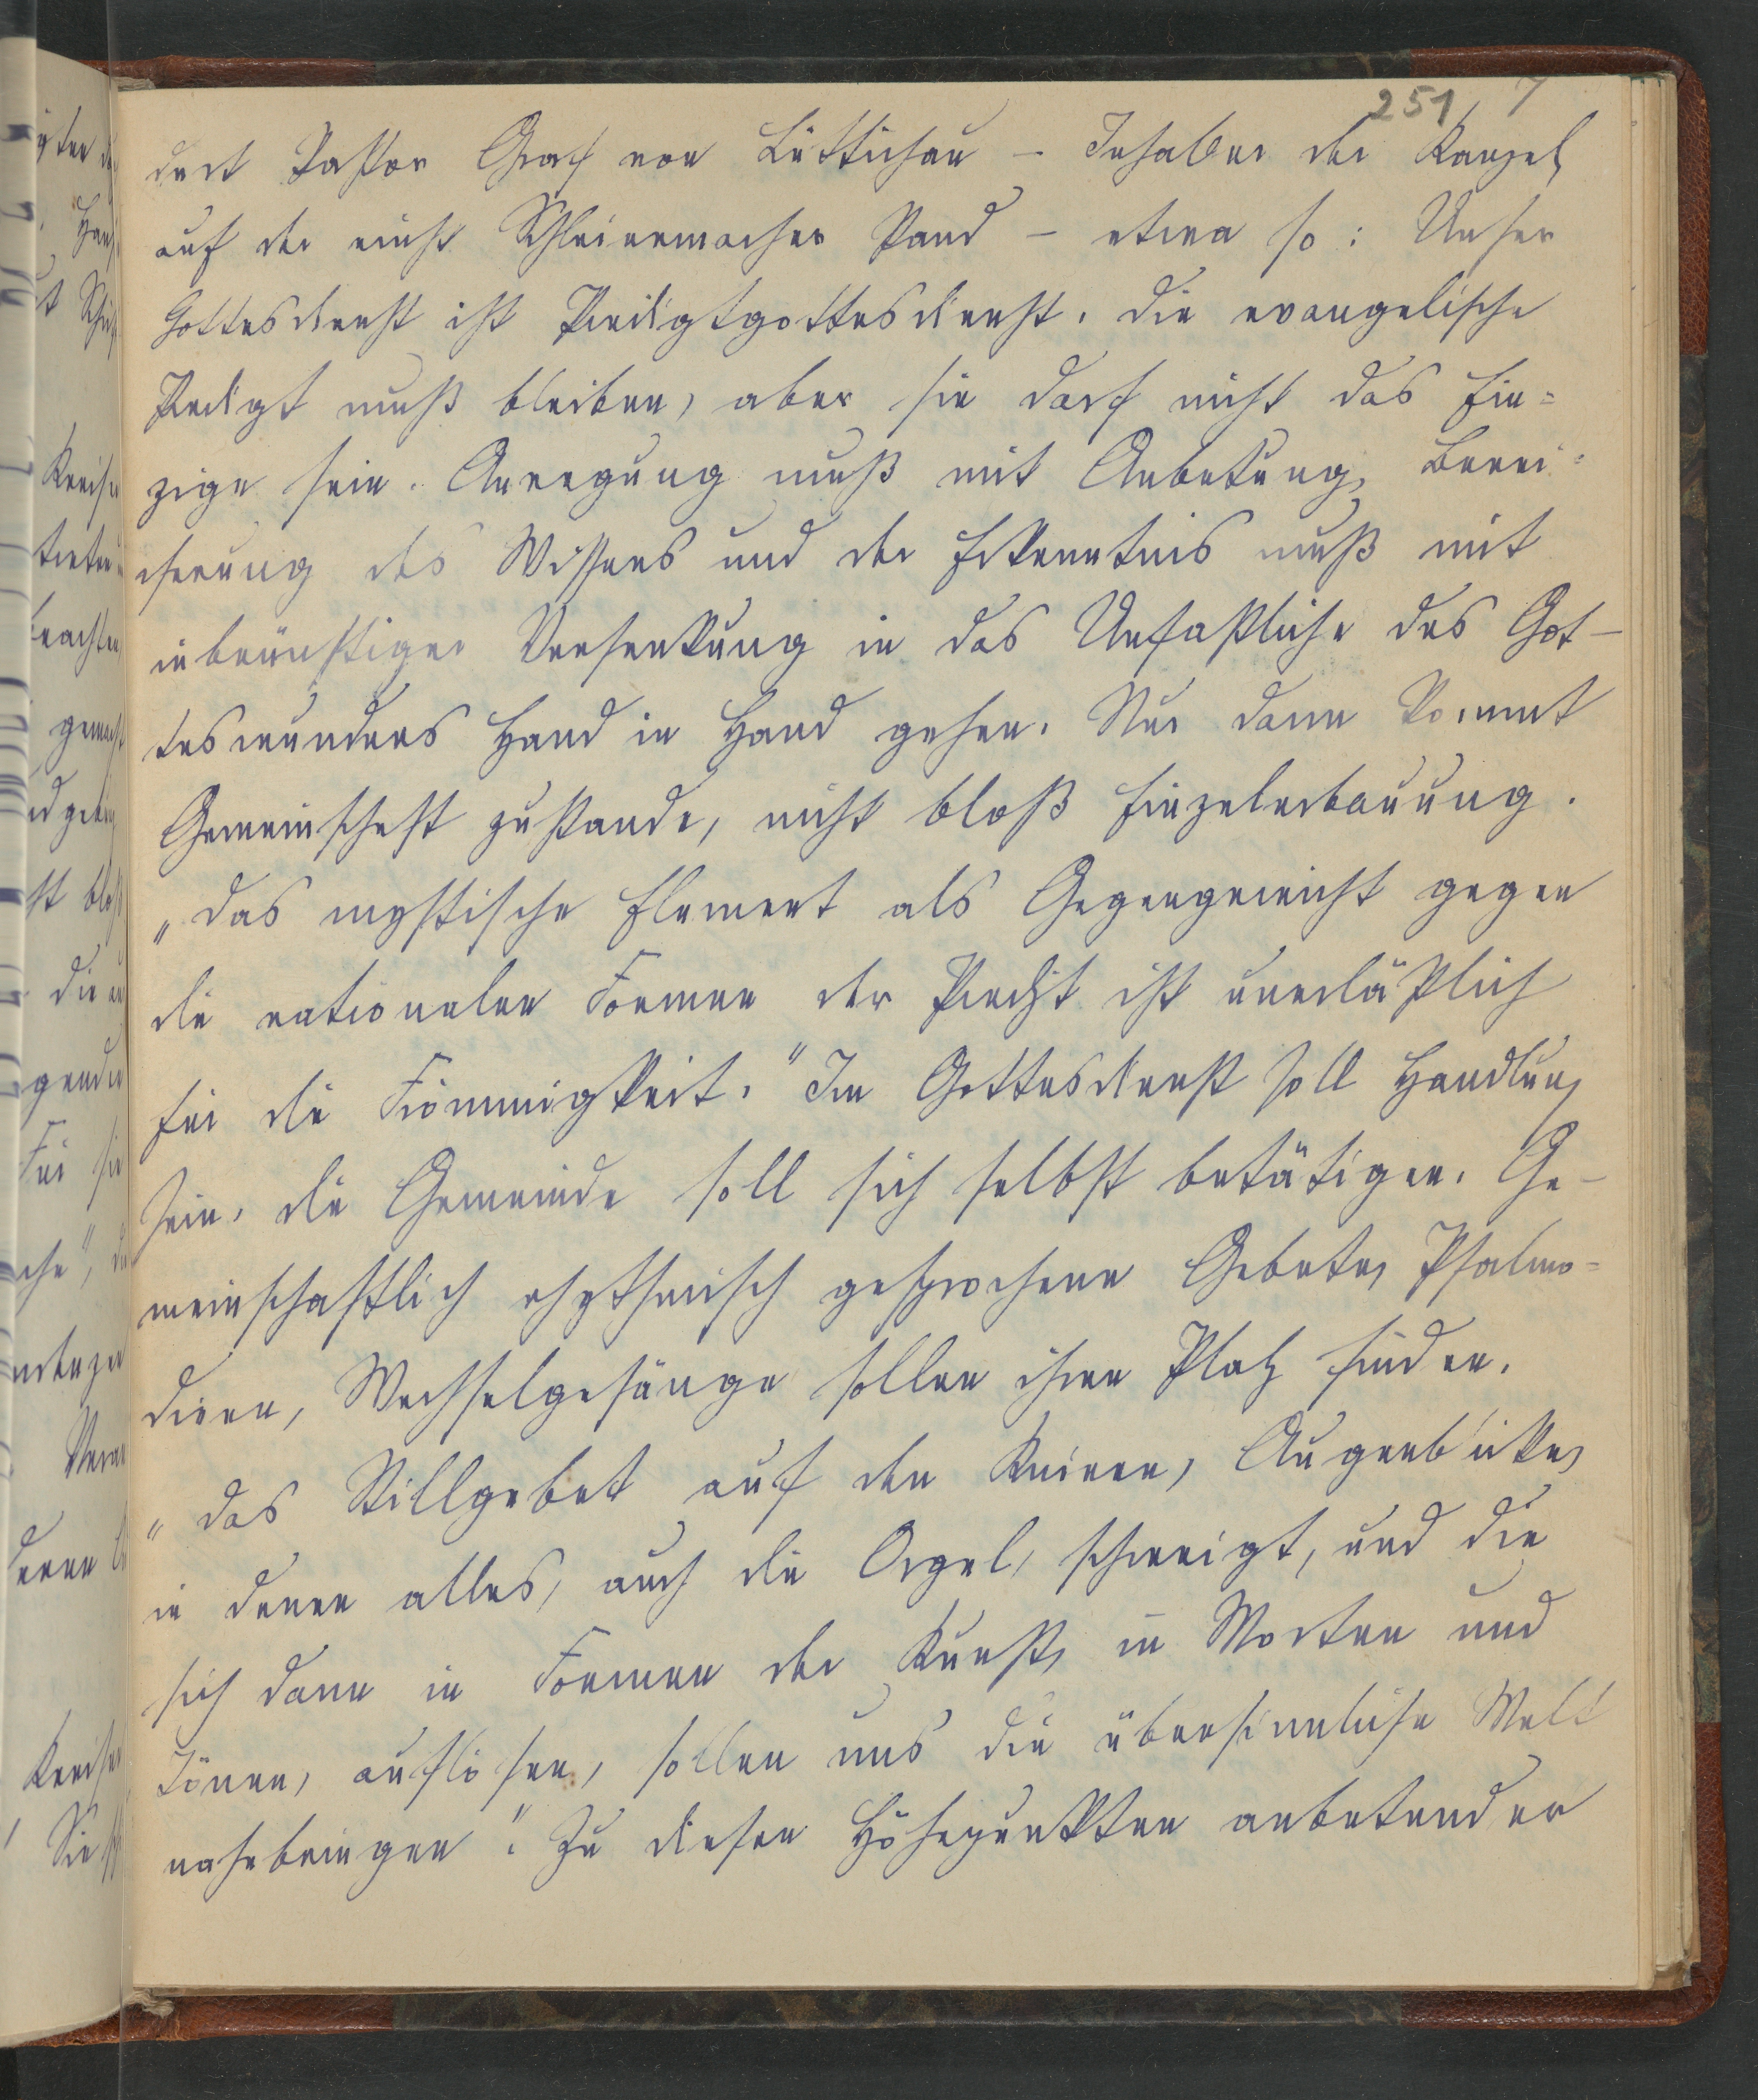 251 7
dert Pastor Graf von Lüttichau – Inhaber der Kanzel
auf der einst Schleiermacher stand – etwa so: Unser
Gottesdienst ist Predigtgottesdienst. Die evangelische
Predigt muß bleiben, aber sie darf nicht das Ein=
zige sein. Anregung muß mit Anbetung, Berei=
cherung des Wissens und der Erkenntnis muß mit
inbrünstiger Versenkung in das Unfaßliche des Got-
teswunders Hand in Hand gehen. Nur dann kommt
Gemeinschaft zustande, nicht bloß Einzelerbauung.
„Das mystische Element als Gegengewicht gegen
die rationalen Formen der Predigt ist unerläßlich
für die Frömmigkeit." Im Gottesdienst soll Handlung
sein, die Gemeinde soll sich selbst betätigen. Ge-
meinschaftlich rhythmisch gesprochene Gebete, Psalmo=
dieren, Wechselgesänge sollen ihren Platz finden.
„Das Stillgebet auf den Knieen, Augenblicke,
in denen alles, auch die Orgel, schweigt, und die
sich dann in Formen der Kunst, in Worten und
Tönen, auflösen, sollen uns die übersinnliche Welt
nahebringen". Zu diesen Höhepunkten anbetender